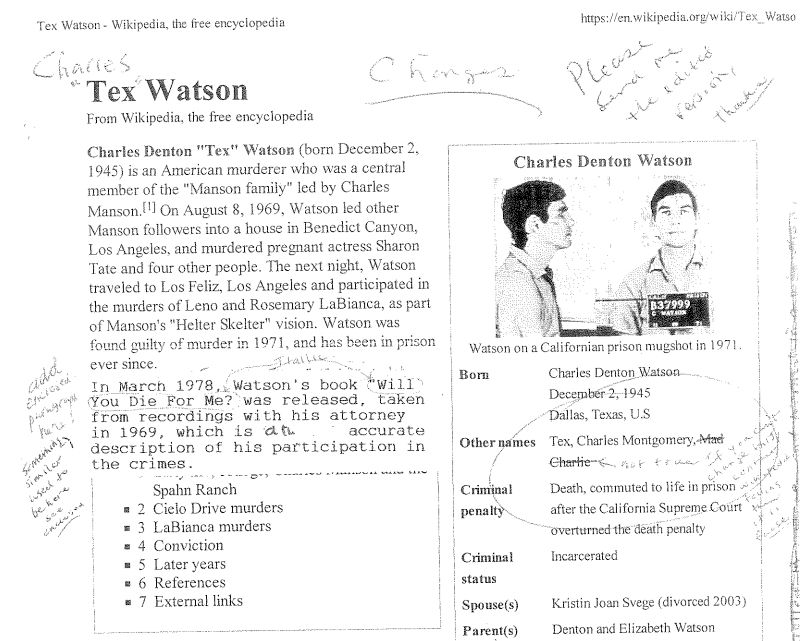 Tex Watson - Wikipedia, the free encyclopedia
https://en.wikipedia.org/wiki/Tex_Watso
Charles
Changes
Please
Send me
the edited
version,
Thanks
"Tex" Watson
From Wikipedia, the free encyclopedia
Charles Denton "Tex" Watson (born December 2,
1945) is an American murderer who was a central
member of the "Manson family" led by Charles
Manson.[1] On August 8, 1969, Watson led other
Manson followers into a house in Benedict Canyon,
Los Angeles, and murdered pregnant actress Sharon
Tate and four other people. The next night, Watson
traveled to Los Feliz, Los Angeles and participated in
the murders of Leno and Rosemary LaBianca, as part
of Manson's "Helter Skelter" vision. Watson was
found guilty of murder in 1971, and has been in prison
ever since.
Itallic
In March 1978, Watson's book "Will
You Die For Me? was released, taken
from recordings with his attorney
in 1969, which is an accurate
description of his participation in
the crimes.
add
enclosed
photograph
here!
Something
similar
used to
be here
see
enclosed
Charles Manson and the
Spahn Ranch
2 Cielo Drive murders
3 LaBianca murders
4 Conviction
5 Later years
6 References
7 External links
Charles Denton Watson
B37999
C WATSON
Watson on a Californian prison mugshot in 1971.
Born Charles Denton Watson
December 2, 1945
Dallas, Texas, U.S
Other names Tex, Charles Montgomery, Mad
Charlie
not true if you can't
change this
Criminal Death, commuted to life in prison
penalty after the California Supreme Court
overturned the death penalty
Criminal Incarcerated
status
Spouse(s) Kristin Joan Svege (divorced 2003)
Parent(s) Denton and Elizabeth Watson